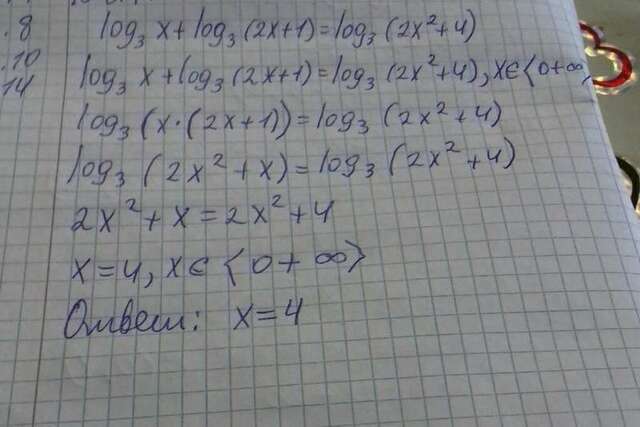 .8 log₃ x + log₃ (2x+1) = log₃ (2x²+4)
.10
14 log₃ x + log₃ (2x+1) = log₃ (2x²+4), x∈{0+∞
log₃ (x·(2x+1)) = log₃ (2x²+4)
log₃ (2x²+x) = log₃ (2x²+4)
2x²+x = 2x²+4
x=4, x∈{0+∞}
Ответ: x=4